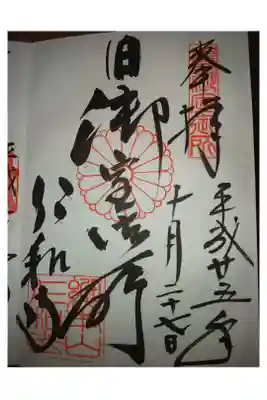 奉拝
平成廿五年
十月二十七日
旧御室御所
仁和寺
平成